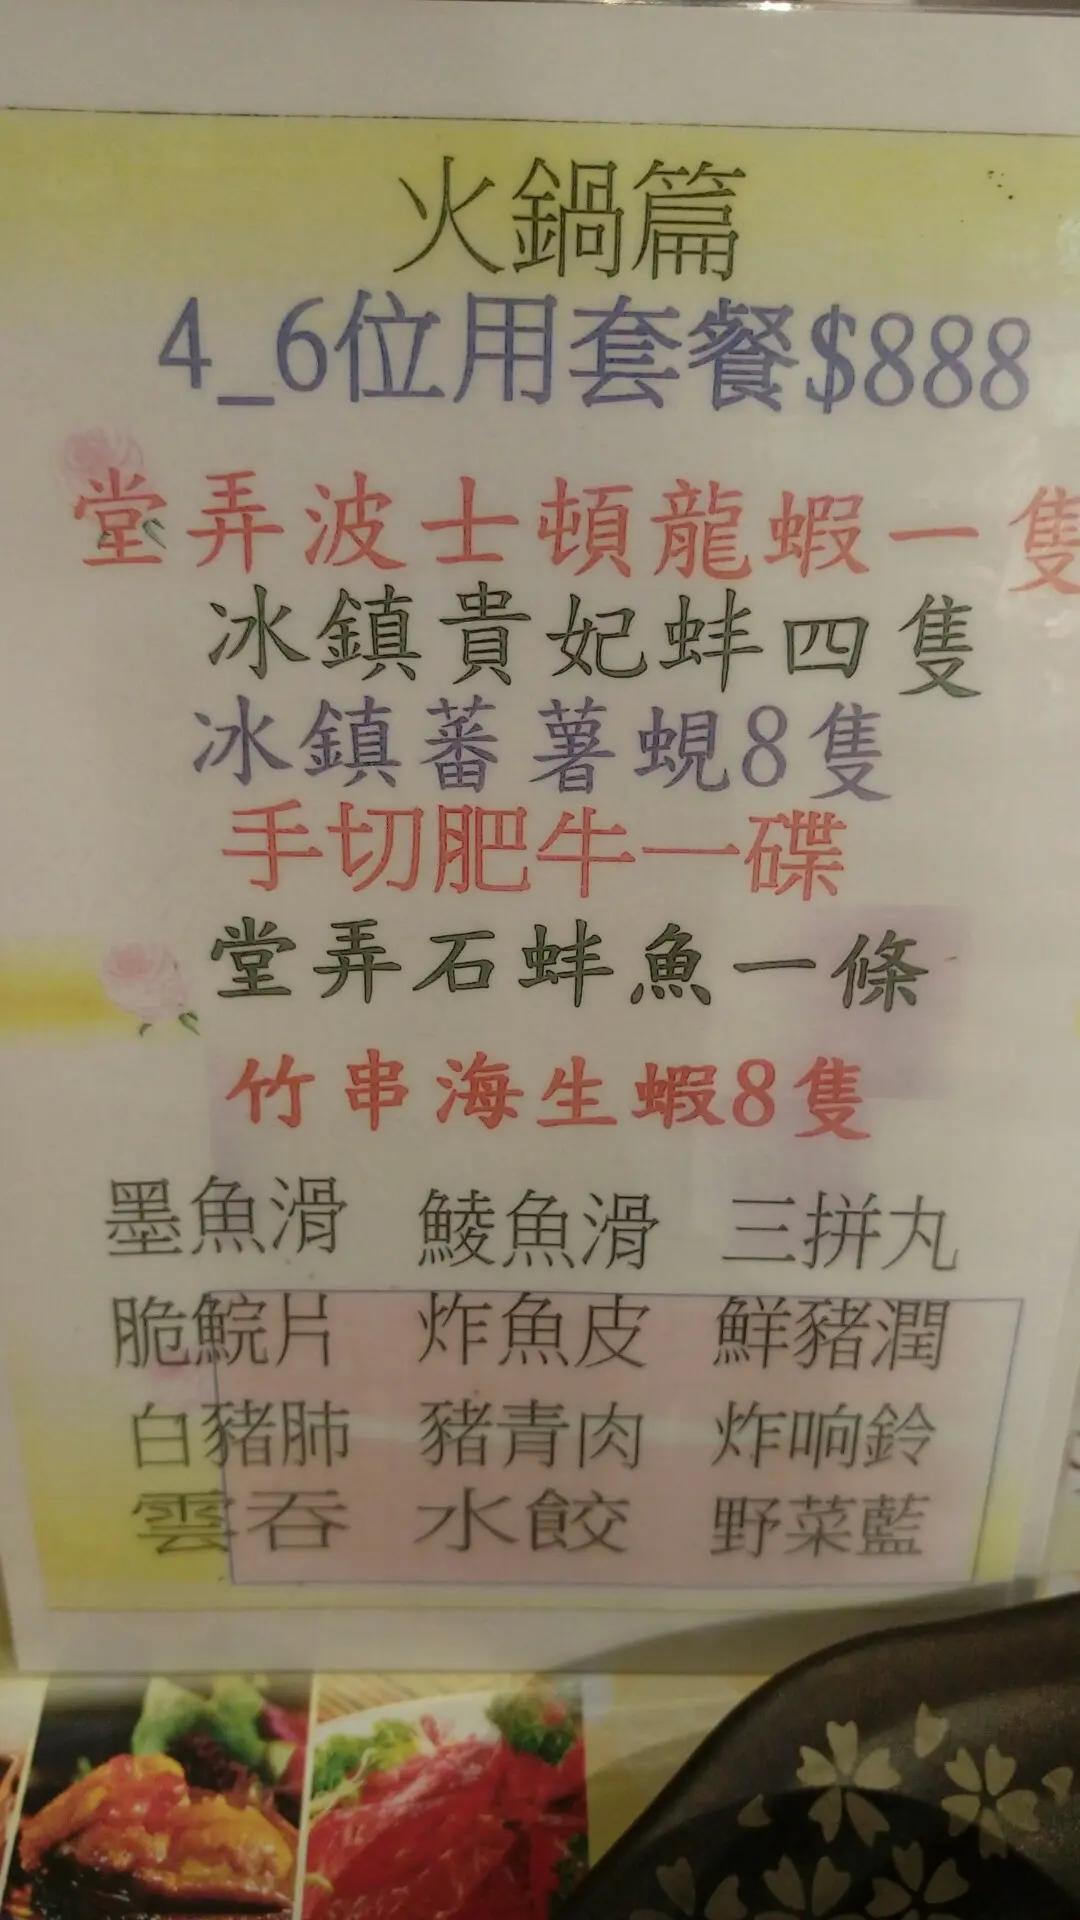 火鍋篇
4_6位用套餐$888
堂弄波士頓龍蝦一隻
冰鎮貴妃蚌四隻
冰鎮蕃薯蜆8隻
手切肥牛一碟
堂弄石蚌魚一條
竹串海生蝦8隻
墨魚滑 鯪魚滑 三拼丸
脆鯇片 炸魚皮 鮮豬潤
白豬肺 豬青肉 炸响鈴
雲吞 水餃 野菜藍